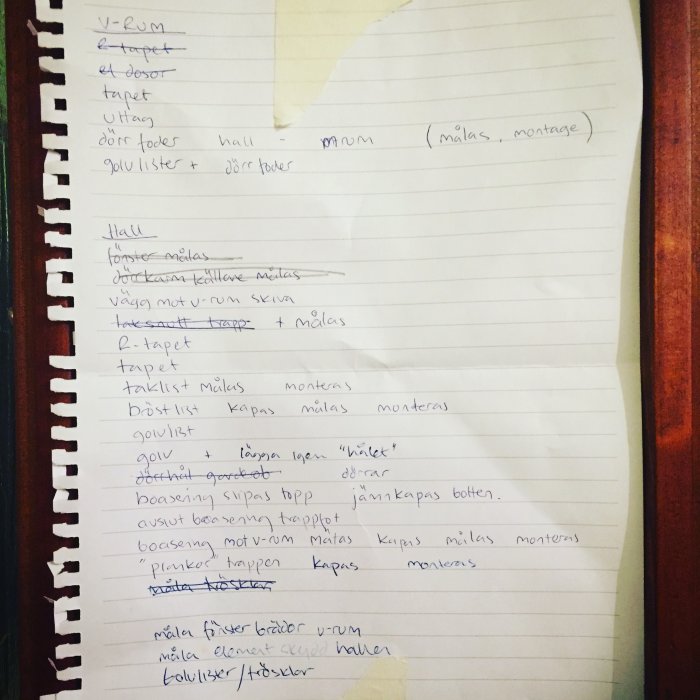 V-RUM
R-tapet
el dosor
tapet
uttag
dörrfoder hall - rum (målas, montage)
golvlister + dörrfoder
Hall
fönster målas
dörrkarm källare målas
vägg mot v-rum skiva
taksnutt trapp + målas
R-tapet
tapet
taklist målas monteras
bröstlist kapas målas monteras
golvlist
golv + lägga igen "hålet"
dörrhål garderob dörrar
boasering slipas topp jämnkapas botten.
avslut boasering trappfot
boasering mot v-rum mätas kapas målas monteras
"plankor" trappen kapas monteras
måla trösklar
måla fönsterbrädor v-rum
måla element skydd hallen
Golvlister/trösklar